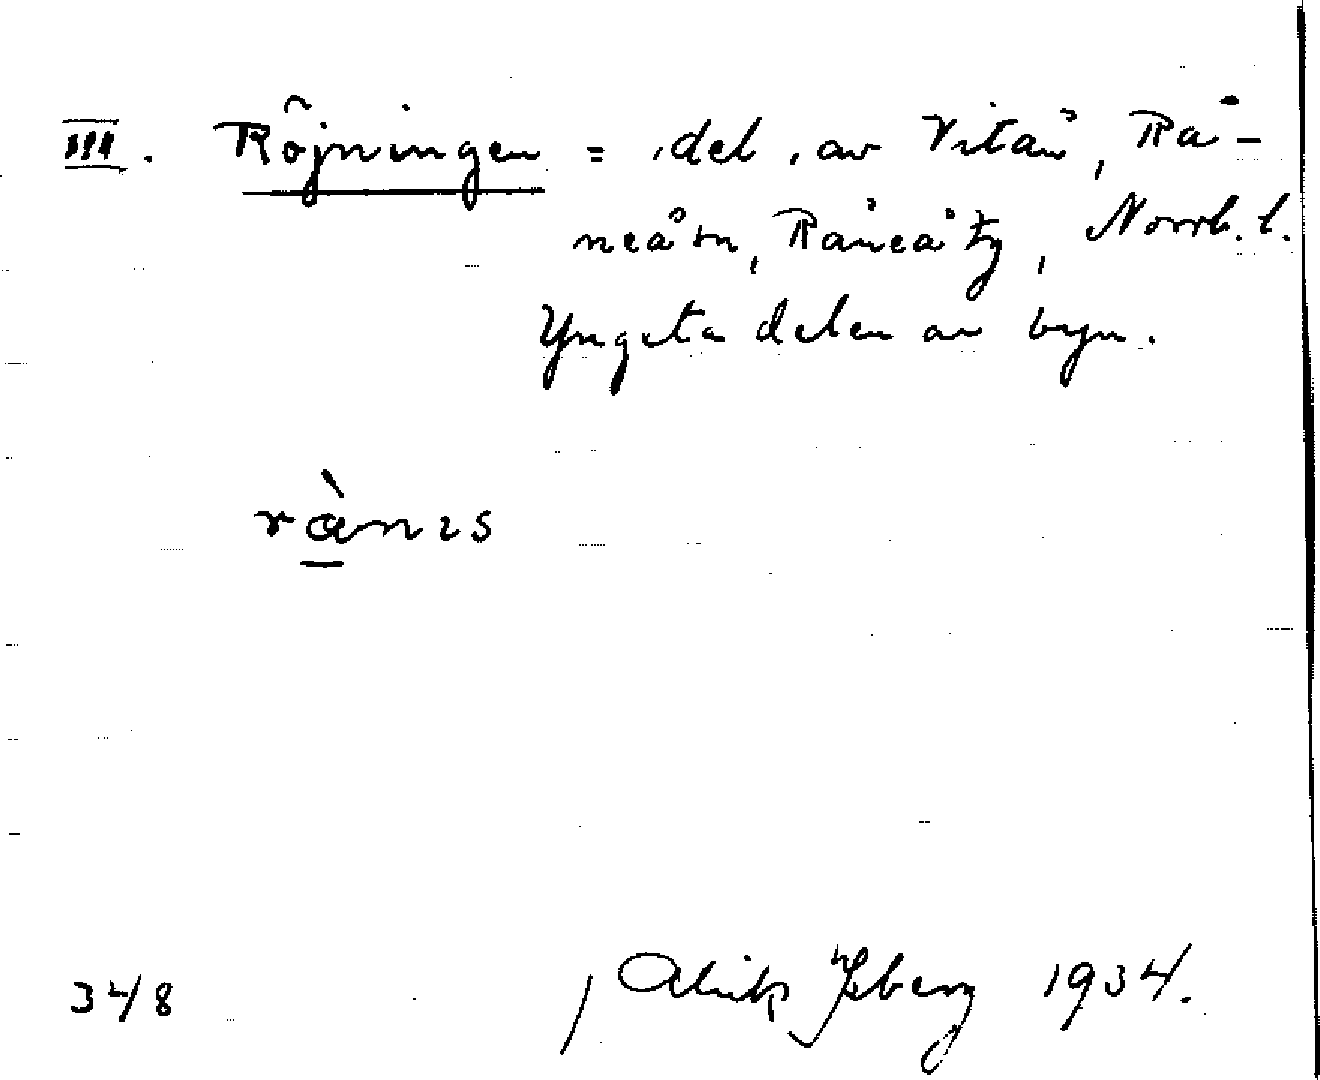 III. Röjningen = del av Vitån, Rå-
neå sn, Råneå tg, Norrb. l.
Yngsta delen av byn.
rànıs
348
Alrik Ysberg 1934.